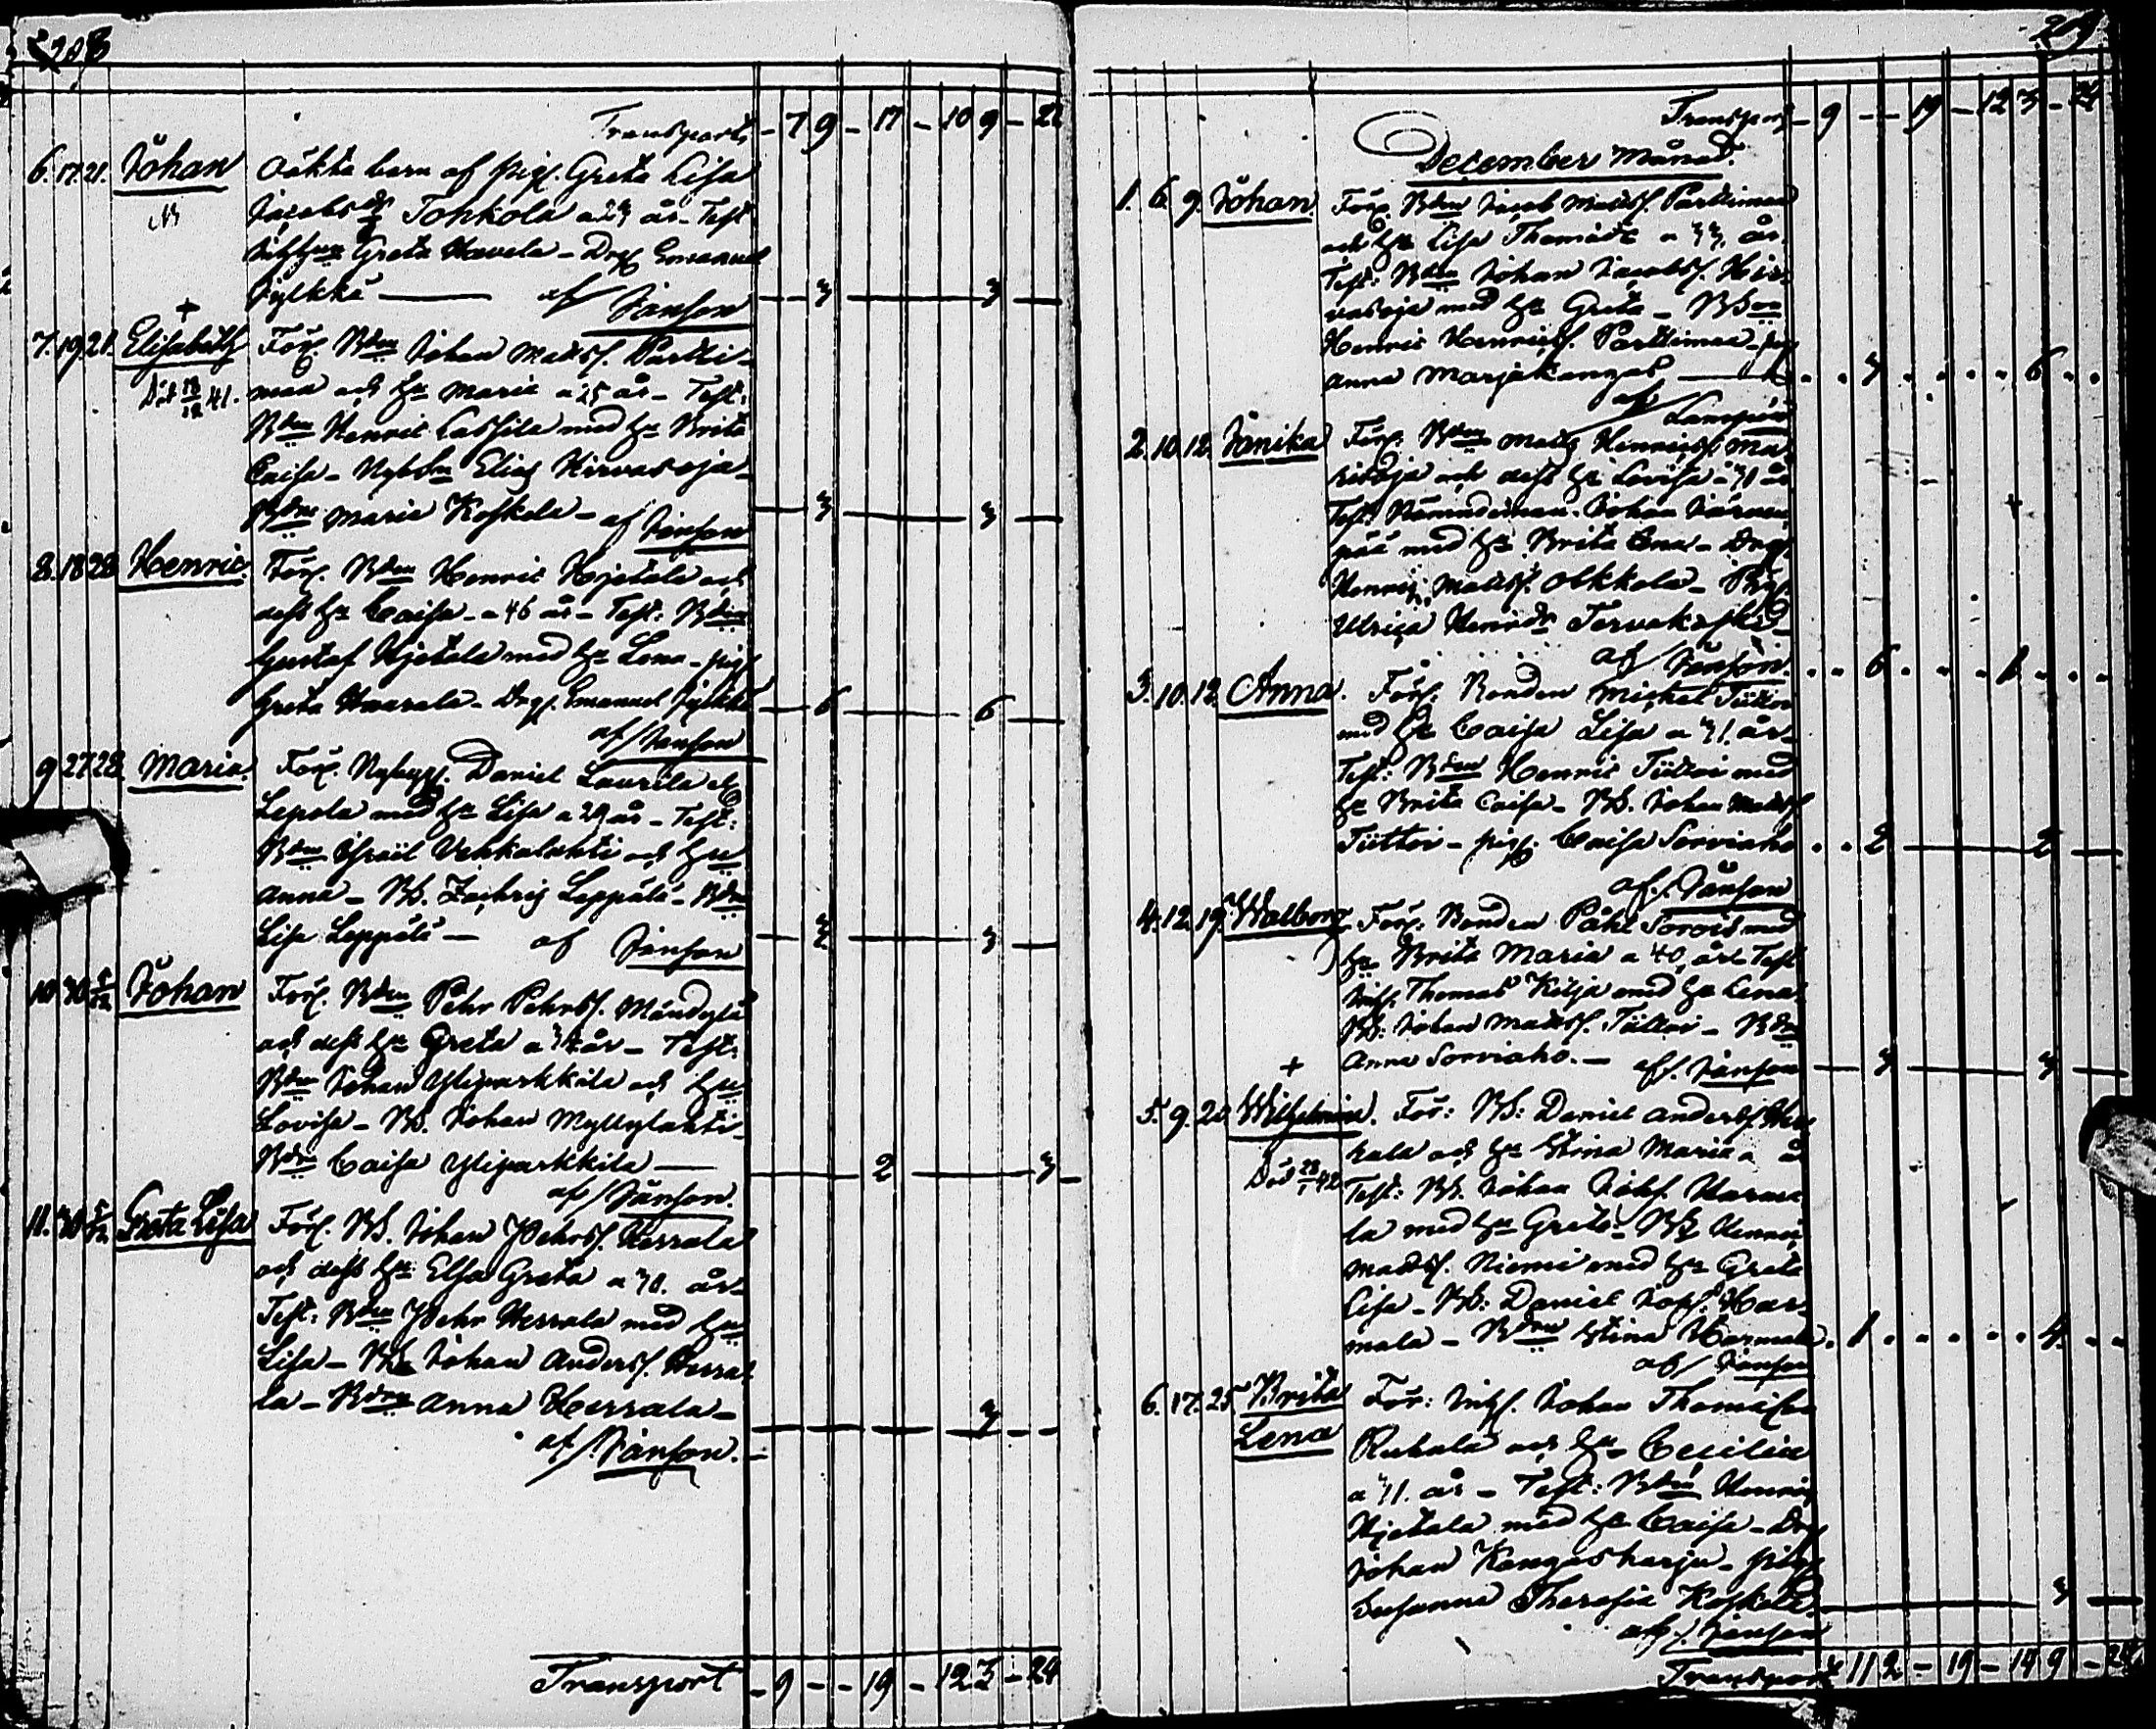 208
Transport - 7 9 - 17 - 10 9 - 22
6. 17. 21. Johan Oäkta barn af pig. Greta Lisa
Jacobsdr Tohkola a 23 år - Test.
Greta Havela - Drg Emanuel
Jylkkä — af Janson - 3 - 3 -
+
7. 19. 21. Elisabeth Förä. Bden Johan Matss. Partti-
Död 18/12 41. maa och Hu Maria a 25 år - Test:
Bden Henric Cassila med Hu Brita
Caisa - Nybn Elias Hirvasoja
Bdns Maria Koskela - af Janson - 3 - 3 -
8. 18 28 Henric. Förä. Bden Henric Hjetala och
dess Hu Caisa - a 46 år - Test. Bden
Gustaf Hjetala med Hu Lena - pig
Greta Havrala - Drg. Emanuel Jylkkä - 6 - 6 -
af Janson
9 27 28 Maria. Förä. Nybygg. Daniel Laurila
Lepola med Hu Lisa a 29 år - Test:
Bden Israil Vehkalahti och Hu
Anna - BS. Zachris Leppälä - Bdr
Lisa Leppälä — af Janson - 3 - 3 -
10 30 5/12 Johan Förä. Bden Pehr Pehrss. Mändylä
och dess Hu Greta a 34 år - Test:
Bden Johan Yliparkkila och Hu
Lovisa - BS. Johan Myllylahti -
Bdr Caisa Yliparkkila — - 2 - 3 -
af Janson.
11. 30 5/12 Greta Lisa Förä. BS. Johan Pehrss. Herrala
och dess Hu Elsa Greta a 30. år -
Test: Bden Pehr Herrala med Hu
Lisa - BS. Johan Anderss. Herra-
la - Bdr Anna Herrala - - 3 - -
af Janson.
Transport - 9 - - 19 - 12 3 - 24
209
Transport - 9 - - 19 - 12 3 - 24
December Månad.
1. 6. 9. Johan Förä. Bden Jacob Matss. Parttimaa
och Hu Lisa Thomädr a 33. år.
Test: Bden Johan Jacobss. Hir-
vasoja med Hu Greta - BSon
Henric Henricss. Parttimaa - pig
Anna Marjakangas — 3 . . . . 6 . .
af Lampén
2. 10. 12. Janika Förä. Bden Matts Henricss. Ma-
och dess Hu Lovisa a 30 år
Test: Nämndeman Johan Järven-
pää med Hu Brita Ema - Drg
Henric Matss. Olkkola - Pig
Ulrica Henricdr Tervakoski -
af Janson. . . 6 . . . 1 . . .
3. 10. 12 Anna. Förä. Bonden Michel Tüttoi
med Hu Caisa Lisa a 31. år
Test: Bden Henric Tüttoi med
Hu Brita Caisa - BS. Johan Matss
Tüttoi - pig. Caisa Sorviaho . . 2 - 2 -
af. Janson
4. 12. 19. Walborg Förä. Bonden Påhl Sorvist med
Hu Brita Maria a 40 år Test
Inhs. Thomas Kilja med Hu Lena
BS: Johan Matss. Tüttoi - Bdr
Anna Sorviaho. — af. Janson - 3 - 3 -
+
5. 9. 20 Wilhelmina. För: BS: Daniel Anderss. Hu-
Död 28/1 42 hala och Hu Stina Maria a år
Test: BS. Johan Johs. Harma-
la med Hu Greta - BS Henric
Matss. Niemi med Hu Greta
Lisa - BS: Daniel Jops. Har-
mala - Bdr Stina Harmala. . 1 . . . . . 4 . .
af Janson
6. 17. 25 Brita För: Inhs. Johan Thomasson
Lena Ruhala och Hu Cecilia
a 41. år - Test: Bden Henric
Hjetala med Hu Caisa - Drg
Johan Kangasharju - pig
Susanna Theresia Koskela. - 3 -
af. Janson
Transport 11 2 - 19 - 14 9 - 24